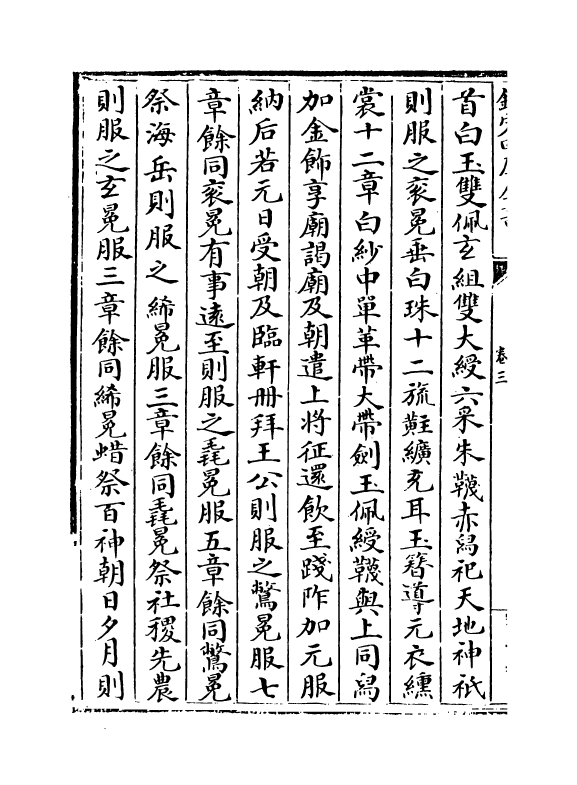 卷三
首白玉雙佩玄組雙大綬六采朱韈赤舄祀天地神祇
則服之衮冕垂白珠十二旒黈纊充耳玉簪導元衣纁
裳十二章白紗中單革帶大帶劍玉佩綬韈與上同舄
加金飾享廟謁廟及朝遣上將征還飲至踐阼加元服
納后若元日受朝及臨軒册拜王公則服之鷩冕服七
章餘同衮冕有事遠至則服之毳冕服五章餘同鷩冕
祭海岳則服之絺冕服三章餘同毳冕祭社稷先農
則服之玄冕服三章餘同絺冕蜡祭百神朝日夕月則